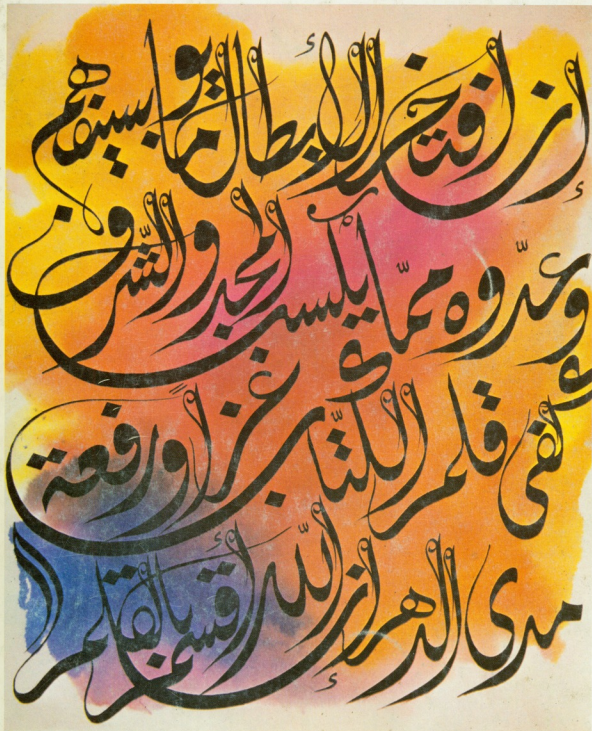 إن افتخر الأبطال يوما بسيفهم
وعدّوه ممّا يكسب المجد والشرف
كفى قلم الكتّاب عزا ورفعة
مدى الدهر إن الله أقسم بالقلم